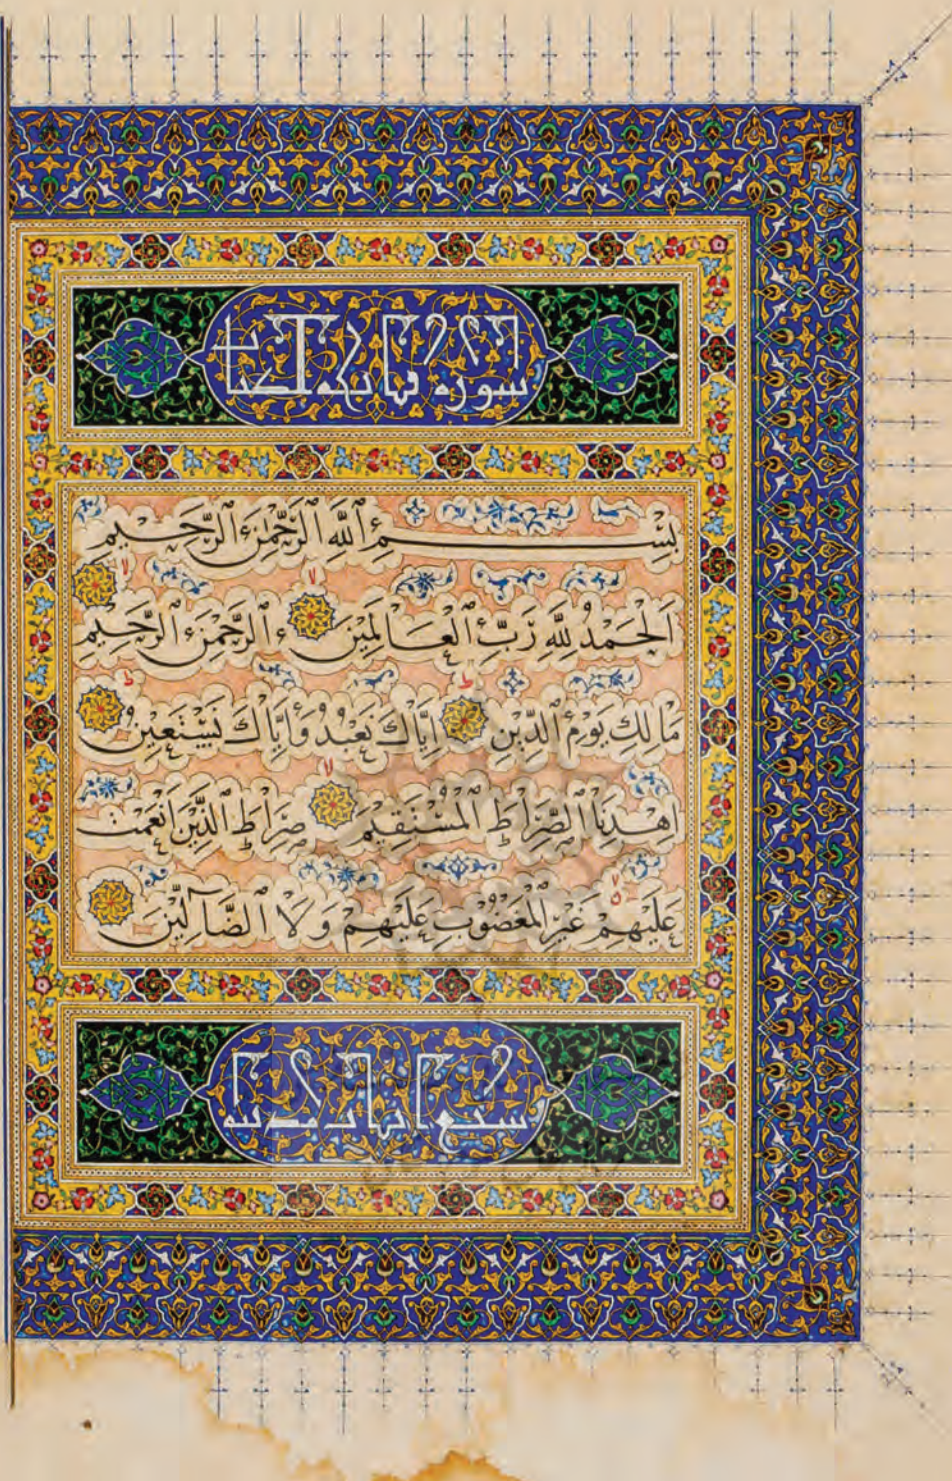 سورة فاتحة الكتاب
بِسْمِ ٱللَّهِ ٱلرَّحْمٰنِ ٱلرَّحِيمِ
اَلْحَمْدُ لِلَّهِ رَبِّ ٱلْعَالَمِينَ لا ٱلرَّحْمٰنِ ٱلرَّحِيمِ لا
مَالِكِ يَوْمِ ٱلدِّينِ ط اِيَّاكَ نَعْبُدُ وَاِيَّاكَ نَسْتَعِينُ ط
اِهْدِنَا ٱلصِّرَاطَ ٱلْمُسْتَقِيمَ لا صِرَاطَ ٱلَّذِينَ اَنْعَمْتَ
عَلَيْهِمْ غَيْرِ ٱلْمَغْضُوبِ عَلَيْهِمْ وَلَا ٱلضَّآلِّينَ
سبع آيات